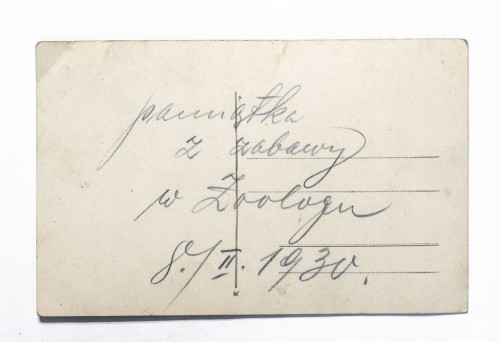 pamiątka
z zabawy
w Zoologu
8./II. 1930.